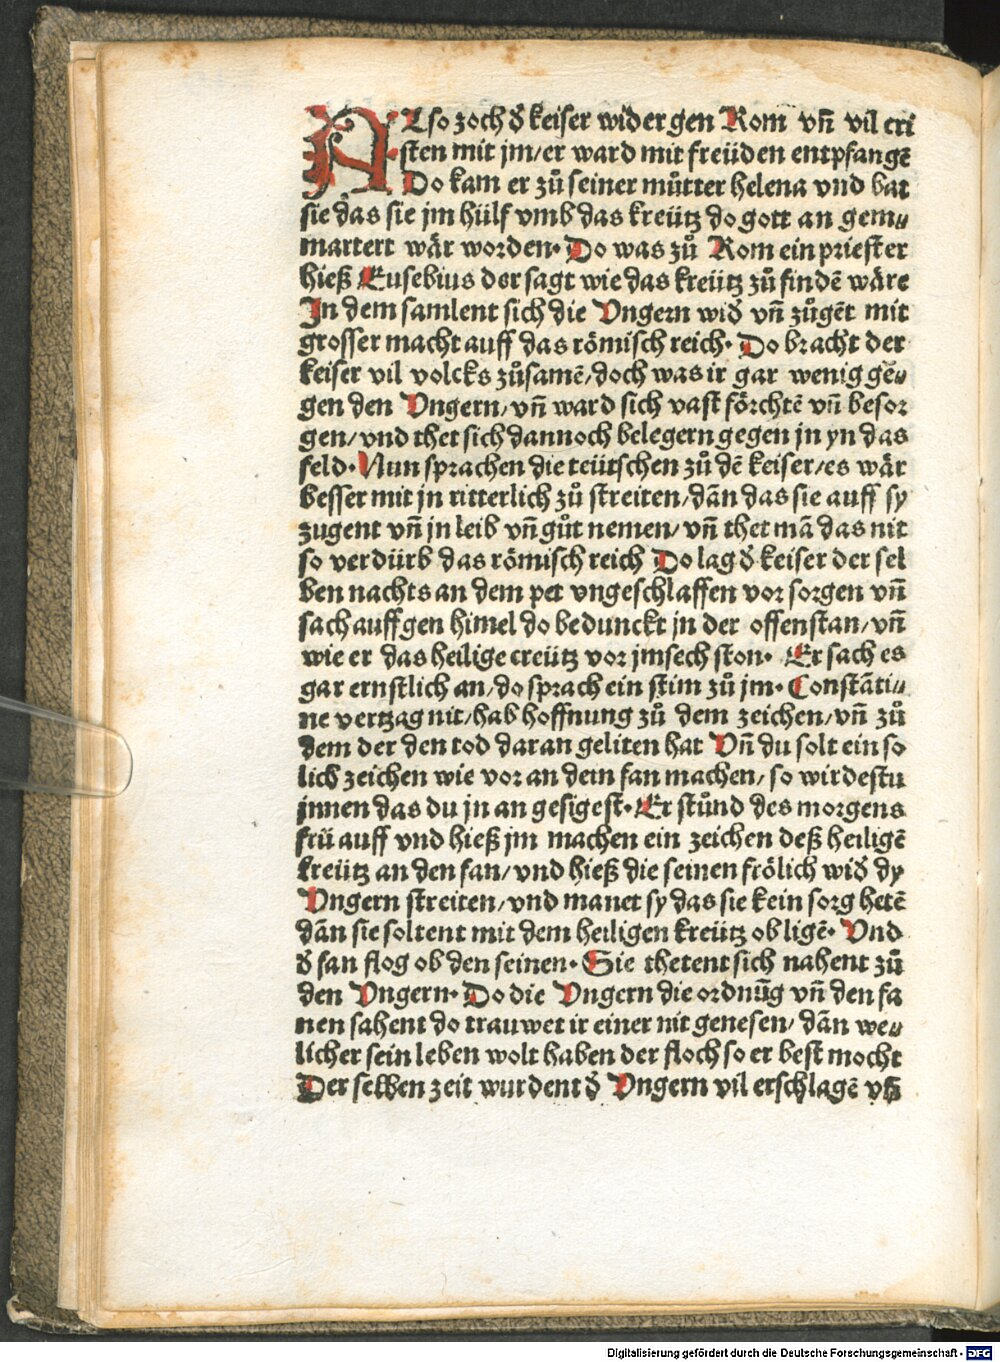 ALso zoch d̄ keiser wider gen Rom vn̄ vil cri
sten mit jm/er ward mit freüden entpfangē
Do kam er zů seiner můtter helena vnd bat
sie das sie jm hülf vmb das kreütz do gott an gem⸗
martert wär worden· Do was zů Rom ein priester
hieß Eusebius der sagt wie das kreütz zů findē wäre
In dem samlent sich die Vngern wid̄ vn̄ zůgēt mit
grosser macht auff das römisch reich· Do bracht der
keiser vil volcks zůsamē/doch was ir gar wenig gē⸗
gen den Vngern/vn̄ ward sich vast förchtē vn̄ besor
gen/vnd thet sich dannoch belegern gegen jn yn das
feld· Nun sprachen die teütschen zů dē keiser/es wär
besser mit jn ritterlich zů streiten/dān das sie auff sy
zugent vn̄ jn leib vn̄ gůt nemen/vn̄ thet mā das nit
so verdürb das römisch reich Do lag d̄ keiser der sel
ben nachts an dem pet vngeschlaffen vor sorgen vn̄
sach auff gen himel do bedunckt jn der offenstan/vn̄
wie er das heilige creütz vor jm sech ston· Er sach es
gar ernstlich an/do sprach ein stim zů jm· Constāti⸗
ne vertzag nit/hab hoffnung zů dem zeichen/vn̄ zů
dem der den tod daran geliten hat Vn̄ du solt ein so
lich zeichen wie vor an dein fan machen/so wirdestu
jnnen das du jn an gesigest· Er stůnd des morgens
frü auff vnd hieß jm machen ein zeichen deß heiligē
kreütz an den fan/vnd hieß die seinen frölich wid̄ dy
Vngern streiten/vnd manet sy das sie kein sorg hetē
dān sie soltent mit dem heiligen kreütz ob ligē· Vnd
d̄ fan flog ob den seinen· Sie thetent sich nahent zů
den Vngern· Do die Vngern die ordnūg vn̄ den fa
nen sahent do trauwet ir einer nit genesen/dān we⸗
licher sein leben wolt haben der floch so er best mocht
Der selben zeit wurdent d̄ Vngern vil erschlagē vn̄
Digitalisierung gefördert durch die Deutsche Forschungsgemeinschaft - DFG